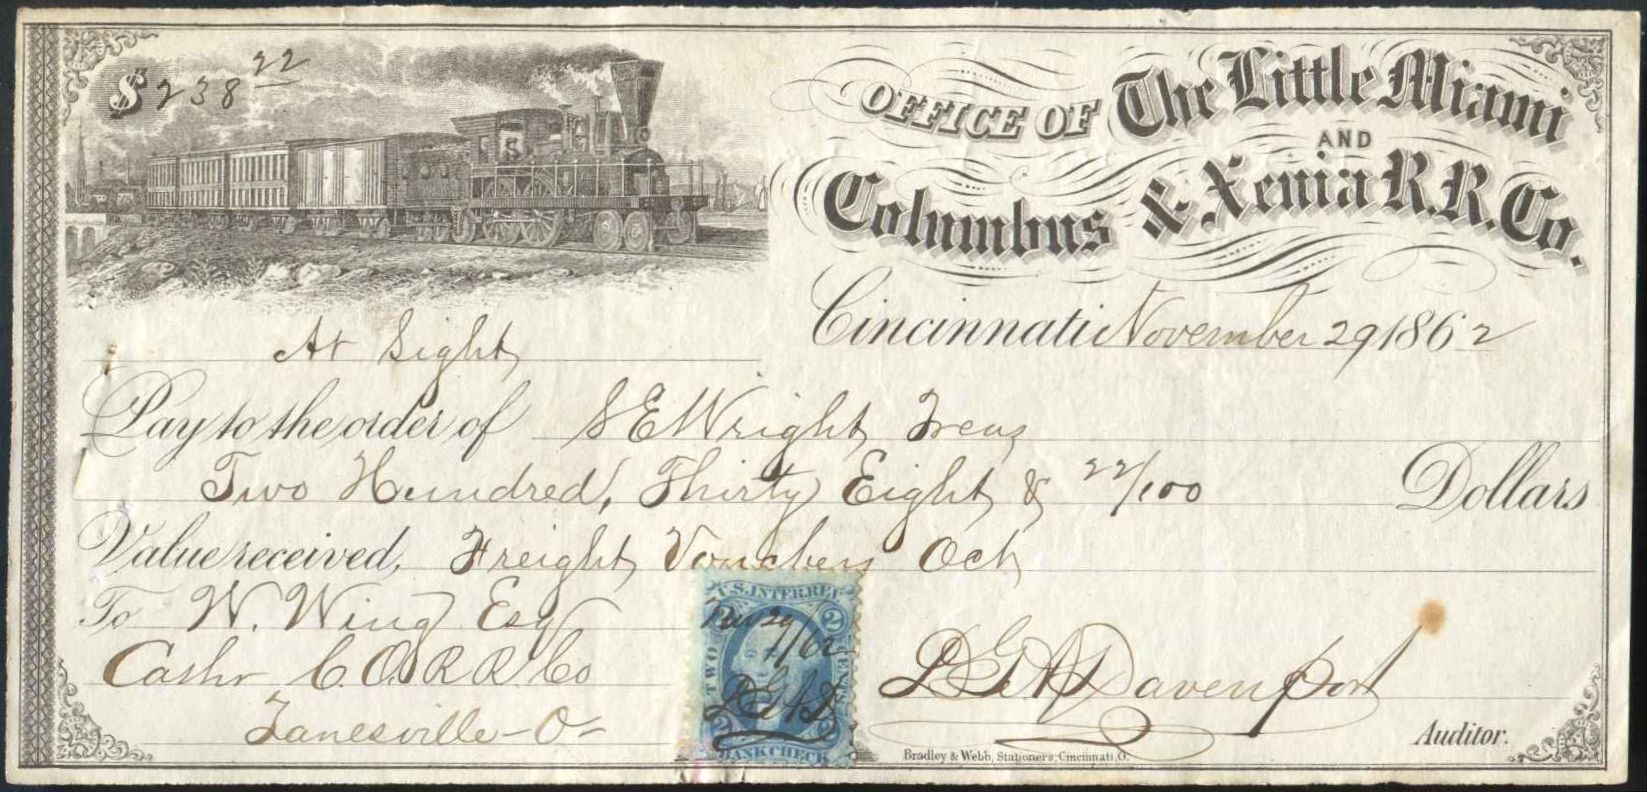 $238 22
OFFICE OF The Little Miami
AND
Columbus & Xenia R.R. Co.
Cincinnati November 29 1862
At Sight
Pay to the order of S E Wright, Treas
Two Hundred, Thirty Eight & 22/100 Dollars
Value received, Freight Vouchers Oct
To W. Wing Esq
Cashr C. O. R R Co
Zanesville - O -
U.S. INTER. REV.
2
Nov 29
/62
TWO CENTS
DGAD
BANK CHECK
D G A Davenport
Auditor.
Bradley & Webb, Stationers, Cincinnati, O.